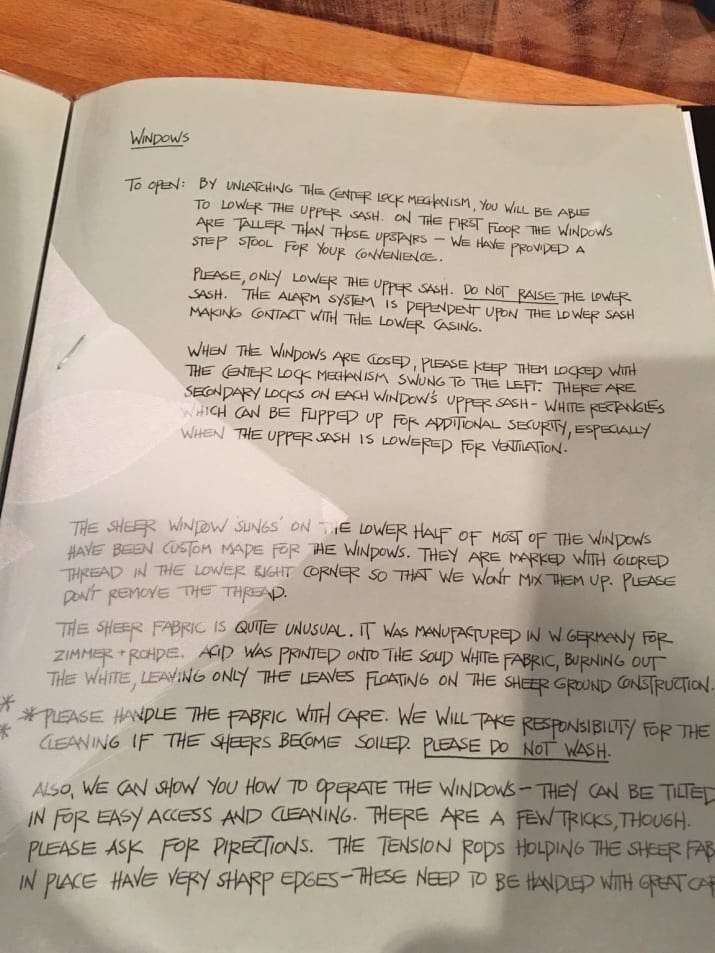 WINDOWS
TO OPEN: BY UNLATCHING THE CENTER LOCK MECHANISM, YOU WILL BE ABLE
TO LOWER THE UPPER SASH. ON THE FIRST FLOOR THE WINDOWS
ARE TALLER THAN THOSE UPSTAIRS – WE HAVE PROVIDED A
STEP STOOL FOR YOUR CONVENIENCE.
PLEASE, ONLY LOWER THE UPPER SASH. DO NOT RAISE THE LOWER
SASH. THE ALARM SYSTEM IS DEPENDENT UPON THE LOWER SASH
MAKING CONTACT WITH THE LOWER CASING.
WHEN THE WINDOWS ARE CLOSED, PLEASE KEEP THEM LOCKED WITH
THE CENTER LOCK MECHANISM SWUNG TO THE LEFT. THERE ARE
SECONDARY LOCKS ON EACH WINDOW'S UPPER SASH – WHITE RECTANGLES
WHICH CAN BE FLIPPED UP FOR ADDITIONAL SECURITY, ESPECIALLY
WHEN THE UPPER SASH IS LOWERED FOR VENTILATION.
THE SHEER WINDOW 'SLINGS' ON THE LOWER HALF OF MOST OF THE WINDOWS
HAVE BEEN CUSTOM MADE FOR THE WINDOWS. THEY ARE MARKED WITH COLORED
THREAD IN THE LOWER RIGHT CORNER SO THAT WE WON'T MIX THEM UP. PLEASE
DON'T REMOVE THE THREAD.
THE SHEER FABRIC IS QUITE UNUSUAL. IT WAS MANUFACTURED IN W. GERMANY FOR
ZIMMER + ROHDE. ACID WAS PRINTED ONTO THE SOLID WHITE FABRIC, BURNING OUT
THE WHITE, LEAVING ONLY THE LEAVES FLOATING ON THE SHEER GROUND CONSTRUCTION.
* * * PLEASE HANDLE THE FABRIC WITH CARE. WE WILL TAKE RESPONSIBILITY FOR THE
CLEANING IF THE SHEERS BECOME SOILED. PLEASE DO NOT WASH.
ALSO, WE CAN SHOW YOU HOW TO OPERATE THE WINDOWS – THEY CAN BE TILTED
IN FOR EASY ACCESS AND CLEANING. THERE ARE A FEW TRICKS, THOUGH.
PLEASE ASK FOR DIRECTIONS. THE TENSION RODS HOLDING THE SHEER FAB
IN PLACE HAVE VERY SHARP EDGES – THESE NEED TO BE HANDLED WITH GREAT CAR